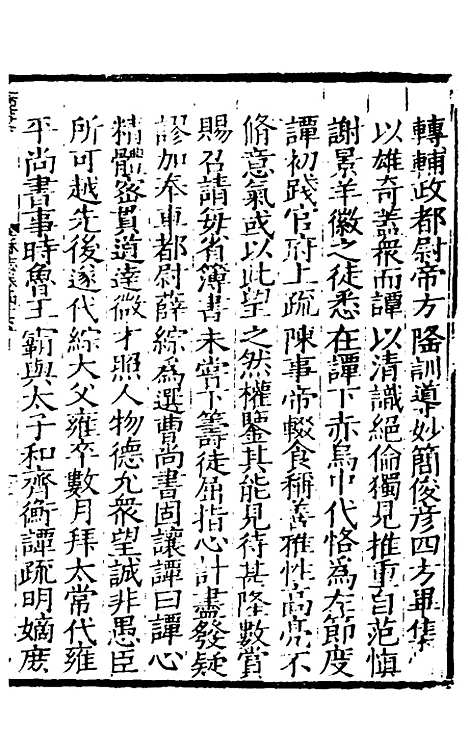 轉輔政都尉帝方隆訓導妙簡俊彦四方畢集
以雄奇蓋衆而譚以清識絕倫獨見推重自范慎
謝景羊徽之徒悉在譚下赤烏中代恪爲左節度
譚初踐官府上疏陳事帝輟食稱善雅性高亮不
脩意氣或以此望之然權鑒其能見待甚隆數賞
賜召請毎省簿書未嘗下籌徒屈指心計盡發疑
謬加奉車都尉薛綜爲選曹尚書固讓譚曰譚心
精體密貫道達微才照人物德允衆望誠非愚臣
所可越先後遂代綜大父雍卒數月拜太常代雍
平尚書事時魯王霸與太子和齊衡譚疏明嫡庶